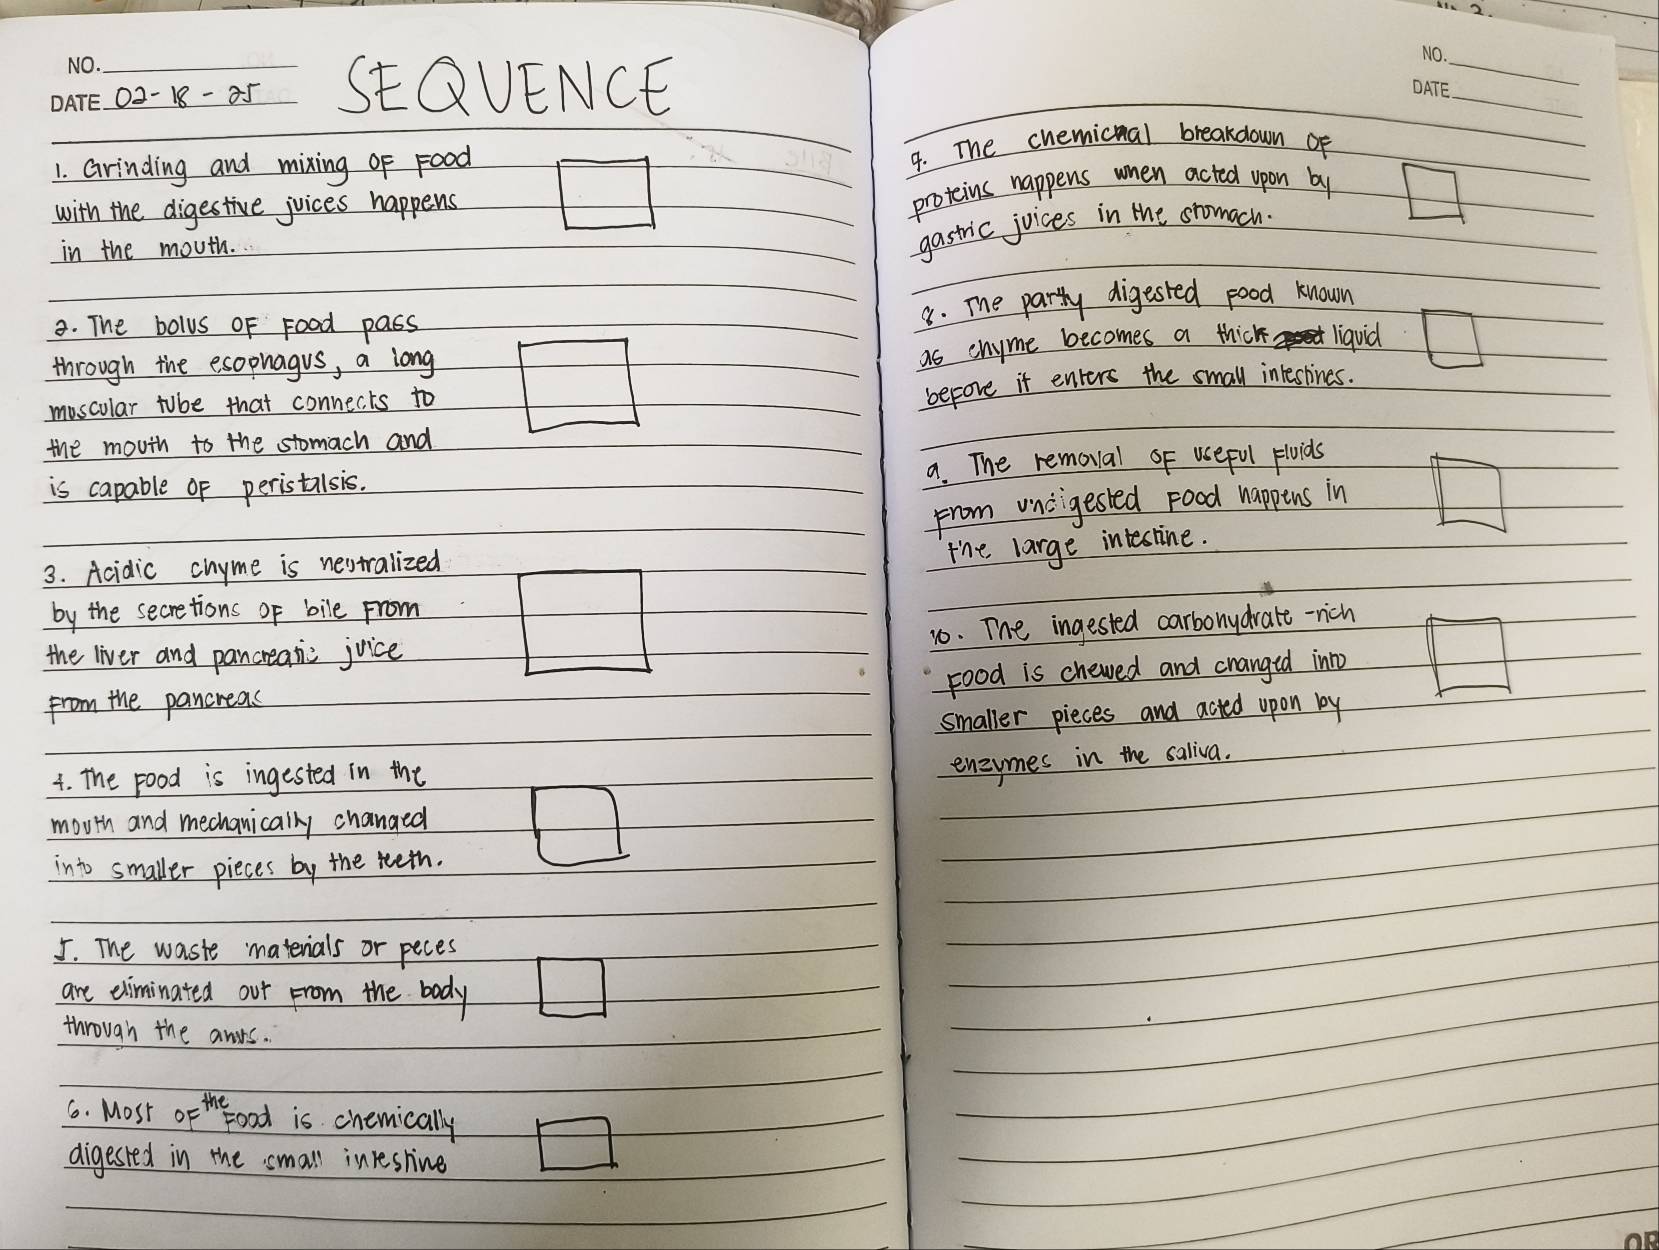 NO.
DATE 02-18-25
SEQUENCE
1. Grinding and mixing of food
with the digestive juices happens
in the mouth.
2. The bolus of food pass
through the esophagus, a long
muscular tube that connects to
the mouth to the stomach and
is capable of peristalsis.
3. Acidic chyme is neutralized
by the secretions of bile from
the liver and pancreatic juice
from the pancreas
4. The food is ingested in the
mouth and mechanically changed
into smaller pieces by the teeth.
5. The waste materials or feces
are eliminated out from the body
through the anus.
6. Most of the food is chemically
digested in the small intestine
NO.
DATE
7. The chemical breakdown of
proteins happens when acted upon by
gastric juices in the stomach.
8. The partly digested food known
as chyme becomes a thick liquid
before it enters the small intestines.
9. The removal of useful fluids
from undigested food happens in
the large intestine.
10. The ingested carbohydrate-rich
food is chewed and changed into
smaller pieces and acted upon by
enzymes in the saliva.
OR